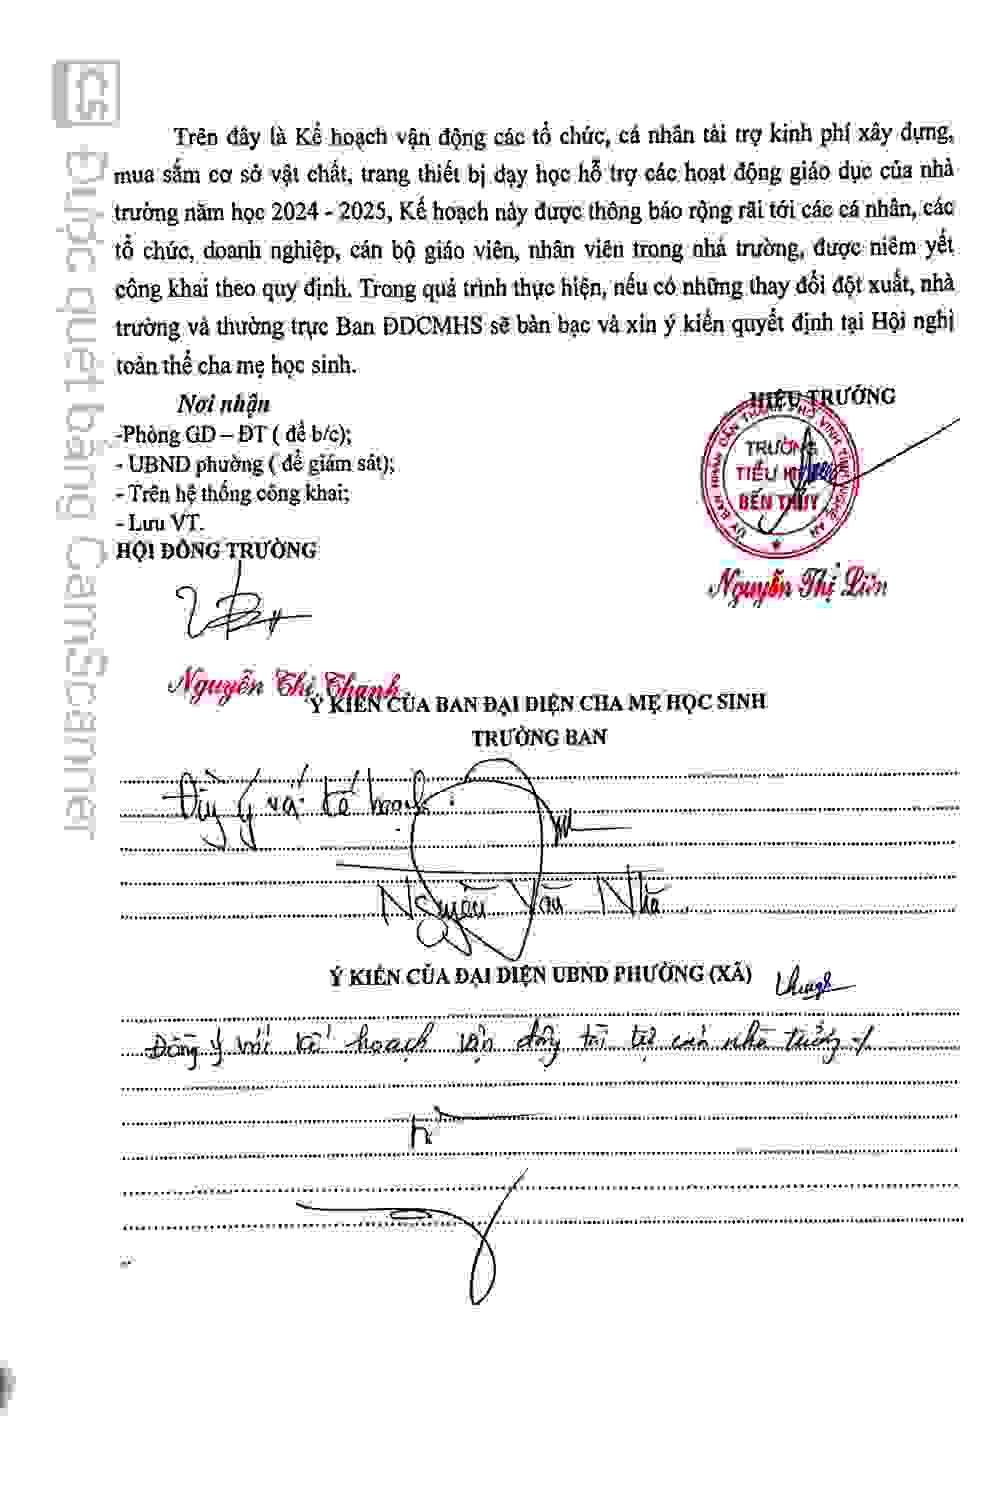 Trên đây là Kế hoạch vận động các tổ chức, cá nhân tài trợ kinh phí xây dựng,
mua sắm cơ sở vật chất, trang thiết bị dạy học hỗ trợ các hoạt động giáo dục của nhà
trường năm học 2024 - 2025, Kế hoạch này được thông báo rộng rãi tới các cá nhân, các
tổ chức, doanh nghiệp, cán bộ giáo viên, nhân viên trong nhà trường, được niêm yết
công khai theo quy định. Trong quá trình thực hiện, nếu có những thay đổi đột xuất, nhà
trường và thường trực Ban ĐDCMHS sẽ bàn bạc và xin ý kiến quyết định tại Hội nghị
toàn thể cha mẹ học sinh.
Nơi nhận
-Phòng GD – ĐT ( để b/c);
- UBND phường ( để giám sát);
- Trên hệ thống công khai;
- Lưu VT.
HỘI ĐỒNG TRƯỜNG
Nguyễn Thị Thanh
HIỆU TRƯỞNG
ỦY BAN NHÂN DÂN THÀNH PHỐ VINH TỈNH NGHỆ AN
TRƯỜNG
TIỂU HỌC
BẾN THỦY
Nguyễn Thị Liên
Ý KIẾN CỦA BAN ĐẠI DIỆN CHA MẸ HỌC SINH
TRƯỞNG BAN
Nguyễn Văn Nhã
Ý KIẾN CỦA ĐẠI DIỆN UBND PHƯỜNG (XÃ)
Đồng ý với kế hoạch vận động tài trợ của nhà trường ./.
CS Được quét bằng CamScanner